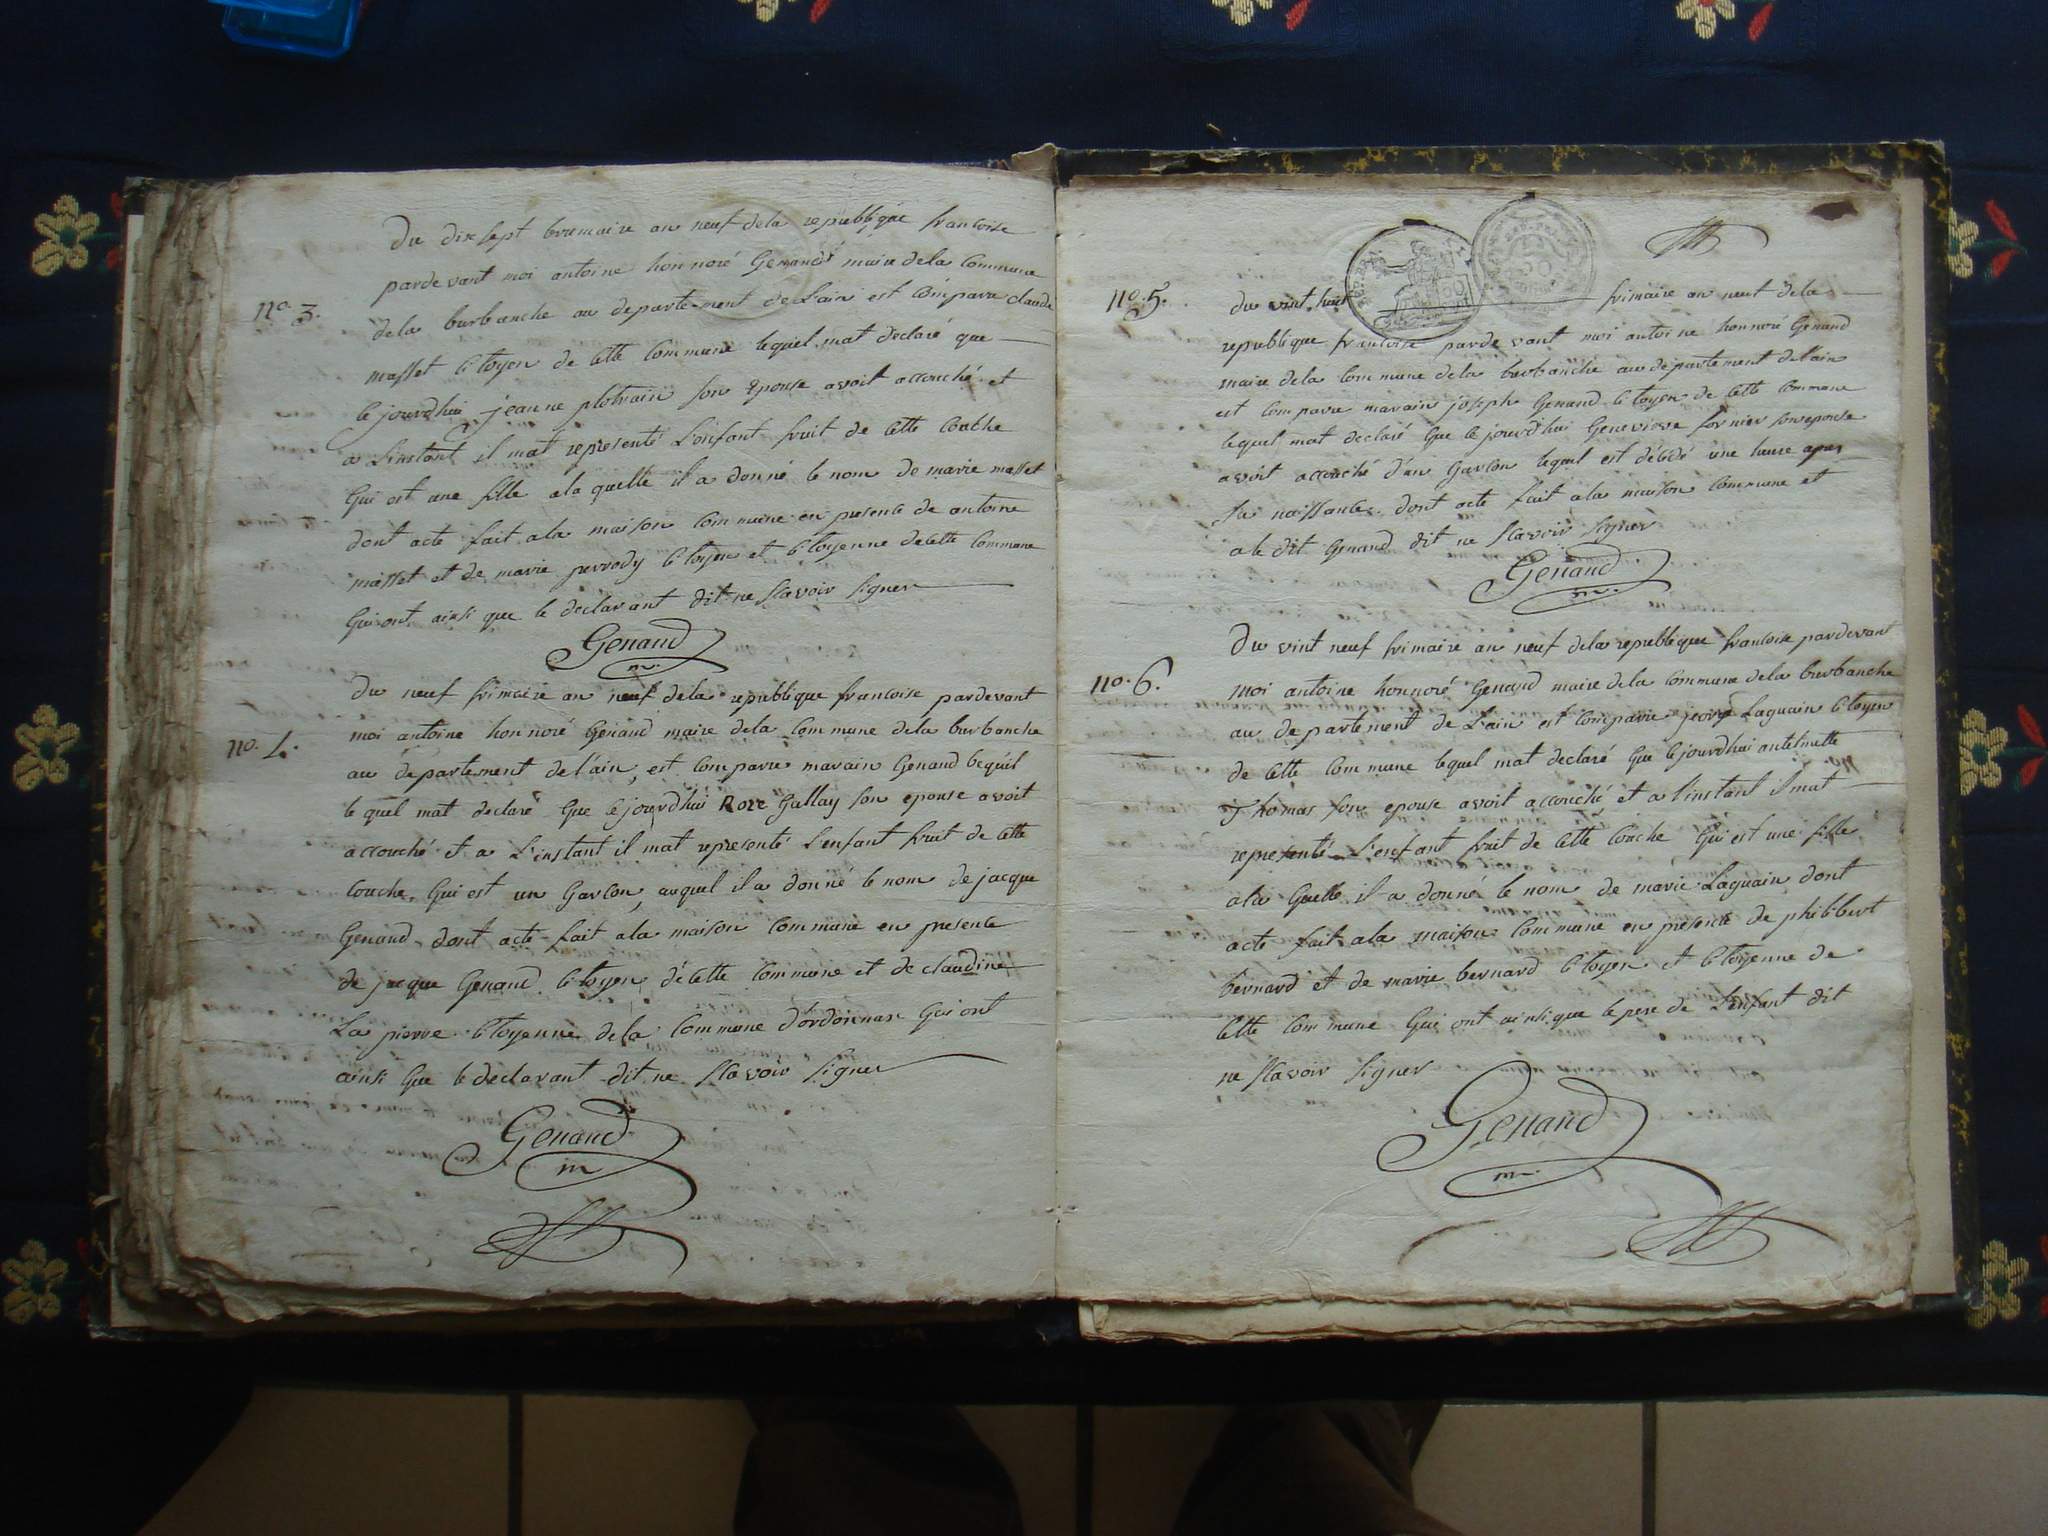 Du dix sept brumaire an neuf de la republique francoise
pardevant moi antoine honnoré Genand maire dela Commune
no. 3.
dela burbanche au departement de L'ain est Comparu claude
masset Citoyen de Cette Commune lequel mat declaré que
Cejourdhui jeanne plotrain son Epouse avoit accouché et
a L'instant il mat representé L'enfant fruit de Cette Couche
Qui est une fille ala quelle il a donné le nom de marie masset
dont acte fait ala maison Commune en presence de antoine
masset et de marie perrody Citoyen et Citoyenne decette Commune
Qui ont ainsi que le declarant dit ne Scavoir Signer
Genand
m.
Du neuf frimaire an neuf dela republique francoise pardevant
no. 4.
moi antoine honnoré Genand maire dela Commune dela burbanche
au departement de l'ain, est Comparu marain Genand
lequel mat declaré Que Cejourdhui Roze Gallay Son epouse avoit
accouché et a L'instant il mat representé L'enfant fruit de Cette
Couche, Qui est un Garcon, auquel il a donné le nom de jacque
Genand dont acte fait ala maison Commune en presence
de jacque Genand Citoyen decette Commune et de claudine
La pierre Citoyenne dela Commune d'ordonnas Qui ont
ainsi Que le declarant dit ne Scavoir Signer
Genand
m
no. 5.
du vint huit frimaire an neuf dela
republique francoise pardevant moi antoine honnoré Genand
maire dela Commune dela burbanche au departement de l'ain
est Comparu marain joseph Genand Citoyen de Cette Commune
lequel mat declaré Que Cejourdhui Genevieve fornier son epouse
avoit accouché d'un Garcon lequel est décédé une heure apres
Sa naissance dont acte fait ala maison Commune et
a le dit Genand dit ne Scavoir Signer
Genand
m.
Du vint neuf frimaire an neuf dela republique francoise pardevant
no. 6.
moi antoine honnoré Genand maire dela Commune dela burbanche
au departement de L'ain est Comparu Laguain Citoyen
de Cette Commune lequel mat declaré Que Cejourdhui antelmette
Thomas son epouse avoit accouché et a l'instant il mat
representé L'enfant fruit de Cette Couche Qui est une fille
ala Quelle il a donné le nom de marie Laguain dont
acte fait ala maison Commune en presence de philibert
bernard et de marie bernard Citoyen et Citoyenne de
Cette Commune Qui ont ainsi que le pere de L'enfant dit
ne Scavoir Signer
Genand
m.